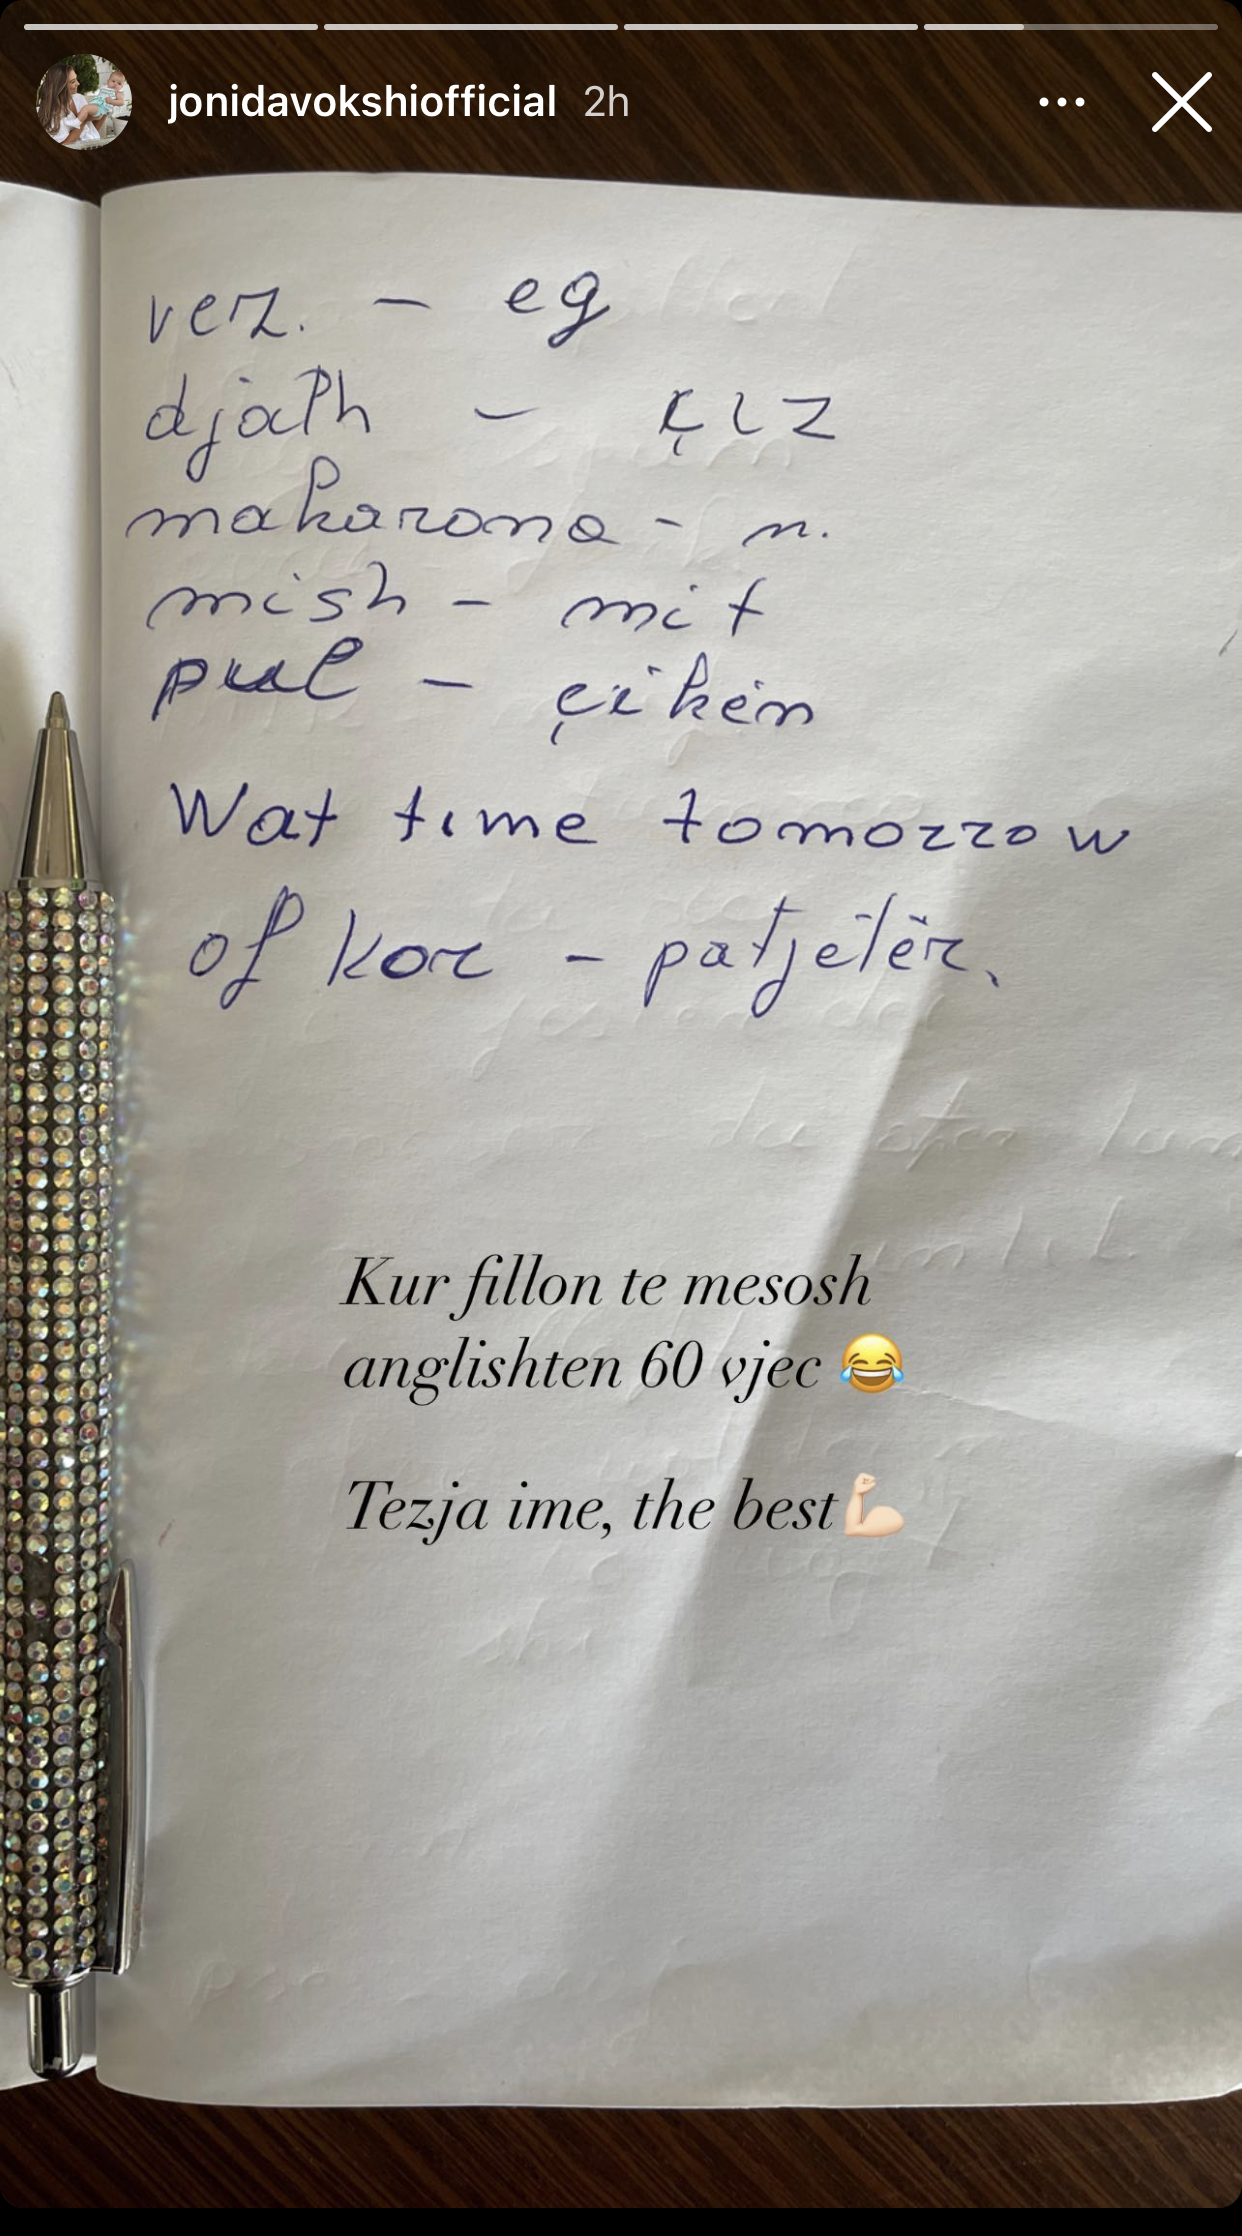 jonidavokshiofficial 2h
vez. - eg
djath - çiz
makarona - m.
mish - mit
pul - çikën
Wat time tomorrow
of kor - patjetër.
Kur fillon te mesosh
anglishten 60 vjec 😂
Tezja ime, the best💪🏻